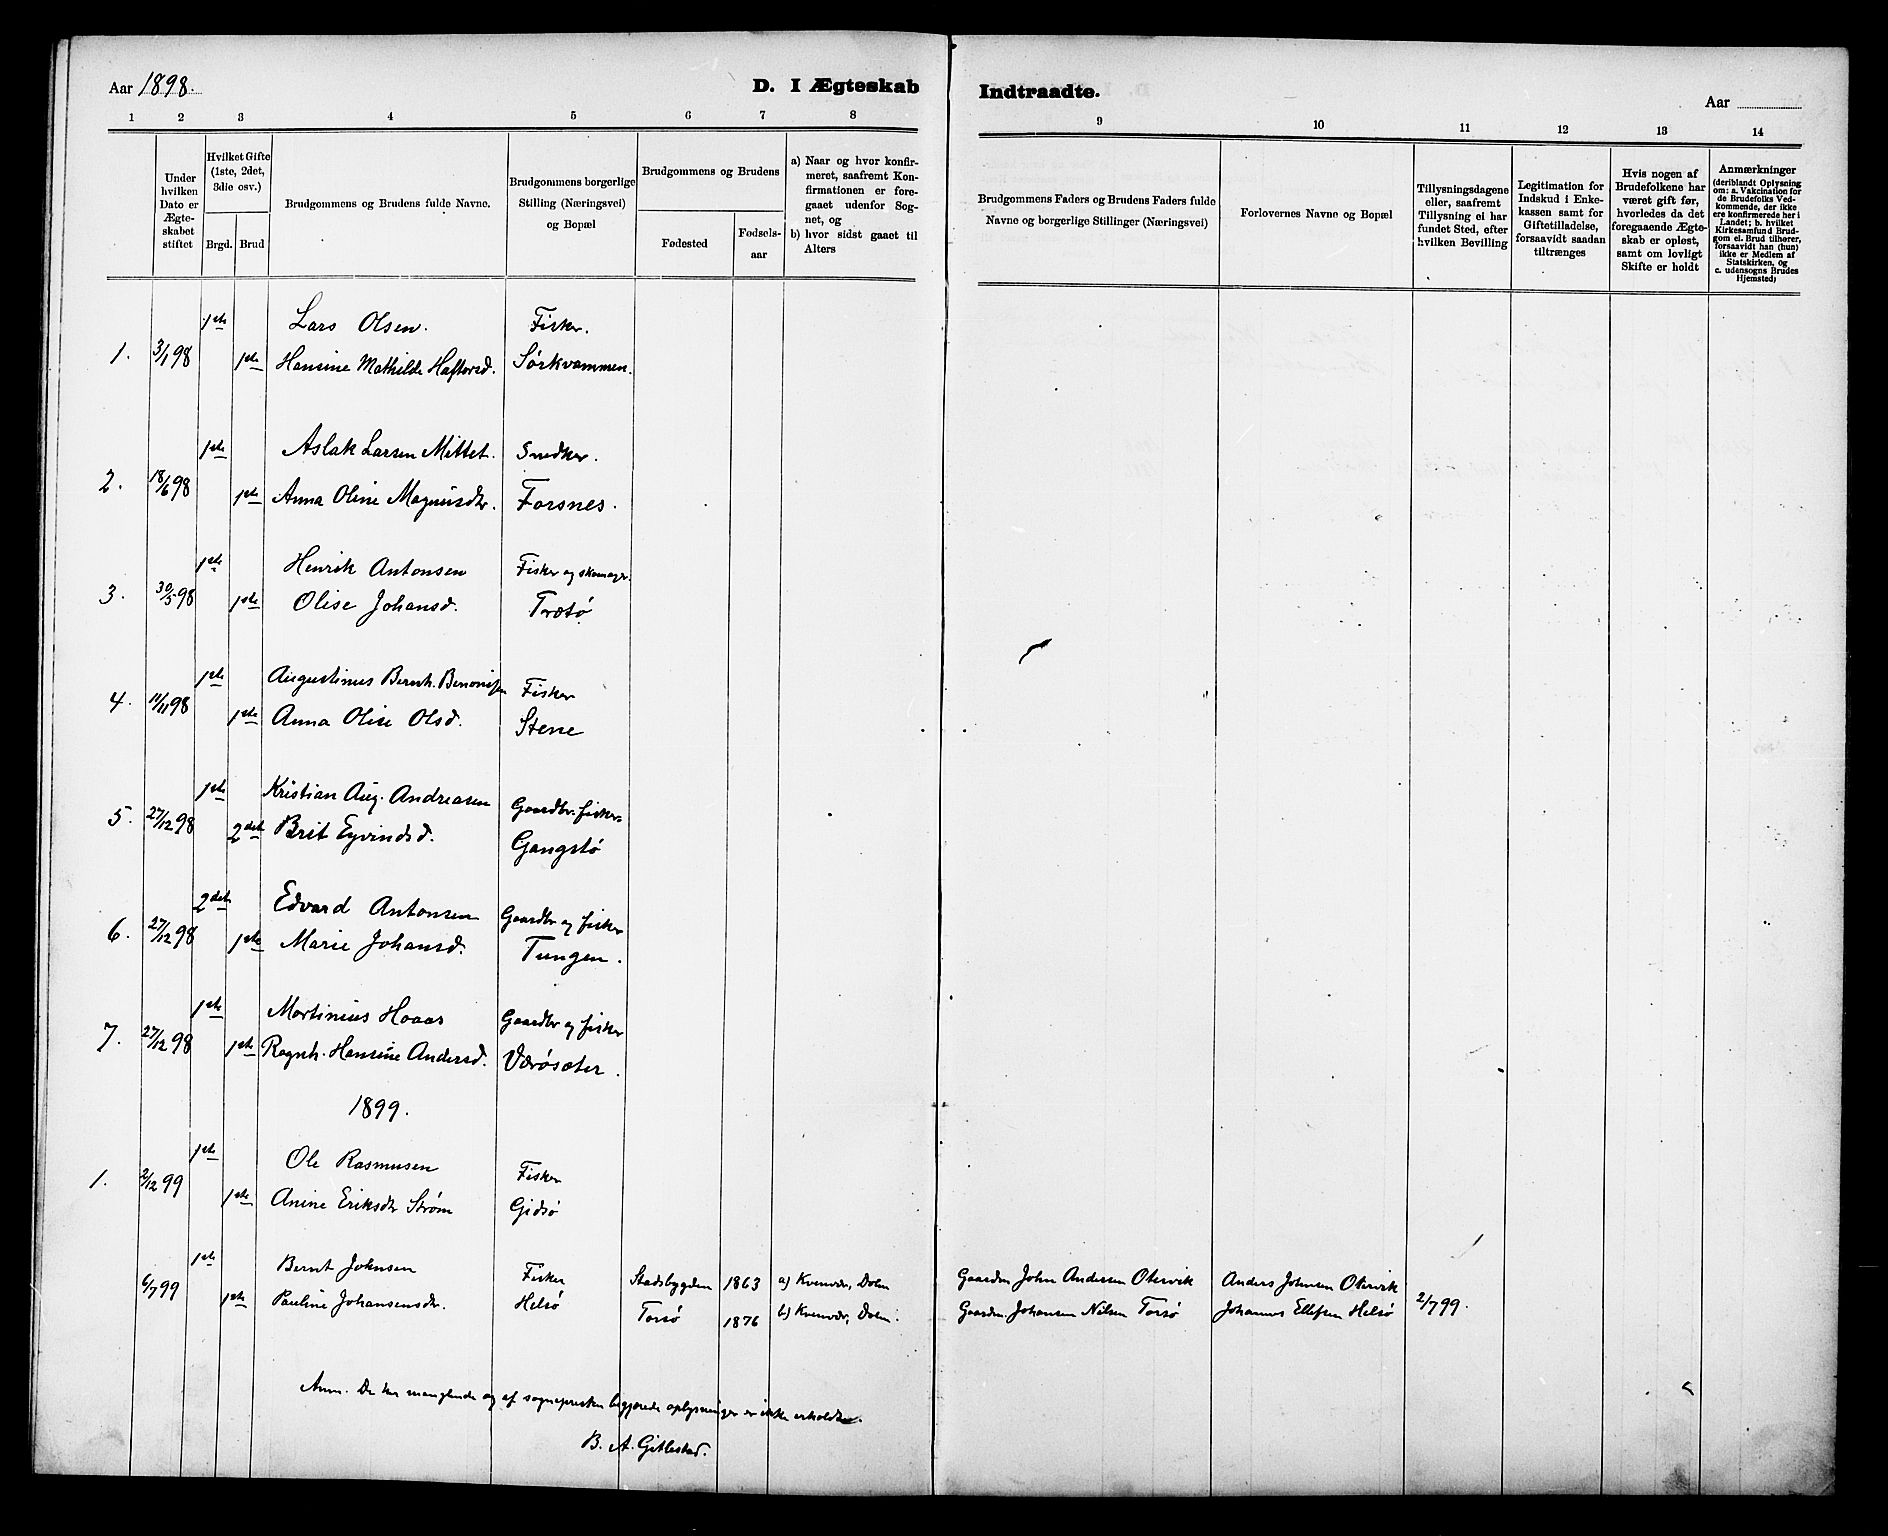 Aar 1898.
D. I Ægteskab Indtraadte.
Aar
1 2 3 4 5 6 7 8 9 10 11 12 13 14
Under hvilken Dato er Ægteskabet stiftet
Hvilket Gifte (1ste, 2det, 3die osv.)
Brgd. Brud
Brudgommens og Brudens fulde Navne.
Brudgommens borgerlige Stilling (Næringsvei) og Bopæl
Brudgommens og Brudens
Fødested
Fødselsaar
a) Naar og hvor konfirmeret, saafremt Konfirmationen er foregaaet udenfor Sognet, og
b) hvor sidst gaaet til Alters
Brudgommens Faders og Brudens Faders fulde Navne og borgerlige Stillinger (Næringsvei)
Forlovernes Navne og Bopæl
Tillysningsdagene eller, saafremt Tillysning ei har fundet Sted, efter hvilken Bevilling
Legitimation for Indskud i Enkekassen samt for Giftetilladelse, forsaavidt saadan tiltrænges
Hvis nogen af Brudefolkene har været gift før, hvorledes da det foregaaende Ægteskab er opløst, samt om lovligt Skifte er holdt
Anmærkninger (deriblandt Oplysning om: a. Vakcination for de Brudefolks Vedkommende, der ikke ere konfirmerede her i Landet; b. hvilket Kirkesamfund Brudgom el. Brud tilhører, forsaavidt han (hun) ikke er Medlem af Statskirken, og c. udensogns Brudes Hjemsted)
1ste Lars Olsen. Fisker.
1. 3/1 98 1ste Hansine Mathilde Haftorsd. Sørkvammen.
1ste Aslak Larsen Mittet. Snedker.
2. 18/6 98 1ste Anna Oline Magnusdtr. Forsnes.
1ste Henrik Antonsen Fisker og skomager.
3. 30/5 98 1ste Olise Johansd. Torstø
1ste Augustinus Bernh. Benonisen Fisker
4. 11/11 98 1ste Anna Olise Olsd. Stene
1ste Kristian Aug. Andreasen Gaardbr. fisker
5. 27/12 98 2det Brit Eyvindsd. Gangstø
2det Edvard Antonsen Gaardbr og fisker
6. 27/12 98 1ste Marie Johansd. Tungen.
1ste Martinius Hoaas Gaardbr og fisker
7. 27/12 98 1ste Ragnh. Hansine Andersd. Værøsæter.
1899.
1ste Ole Rasmusen Fisker
1. 2/12 99 1ste Anine Eriksdtr Strøm Gidsø
1ste Bernt Johnsen Fisker Stadsbygden 1863 a) Kvenvær, Dolm Gaardm John Andersen Otervik Anders Johnsen Otervik
6/7 99 1ste Pauline Johansensdtr. Helsø Torsø 1876 b) Kvenvær, Dolm. Gaardm. Johansen Nilsen Torsø Johannes Ellefsen Helsø 2/7 99.
Anm. De her manglende og af sognepresten begjærede oplysninger er ikke erholdte.
B. A. Gitlestad.